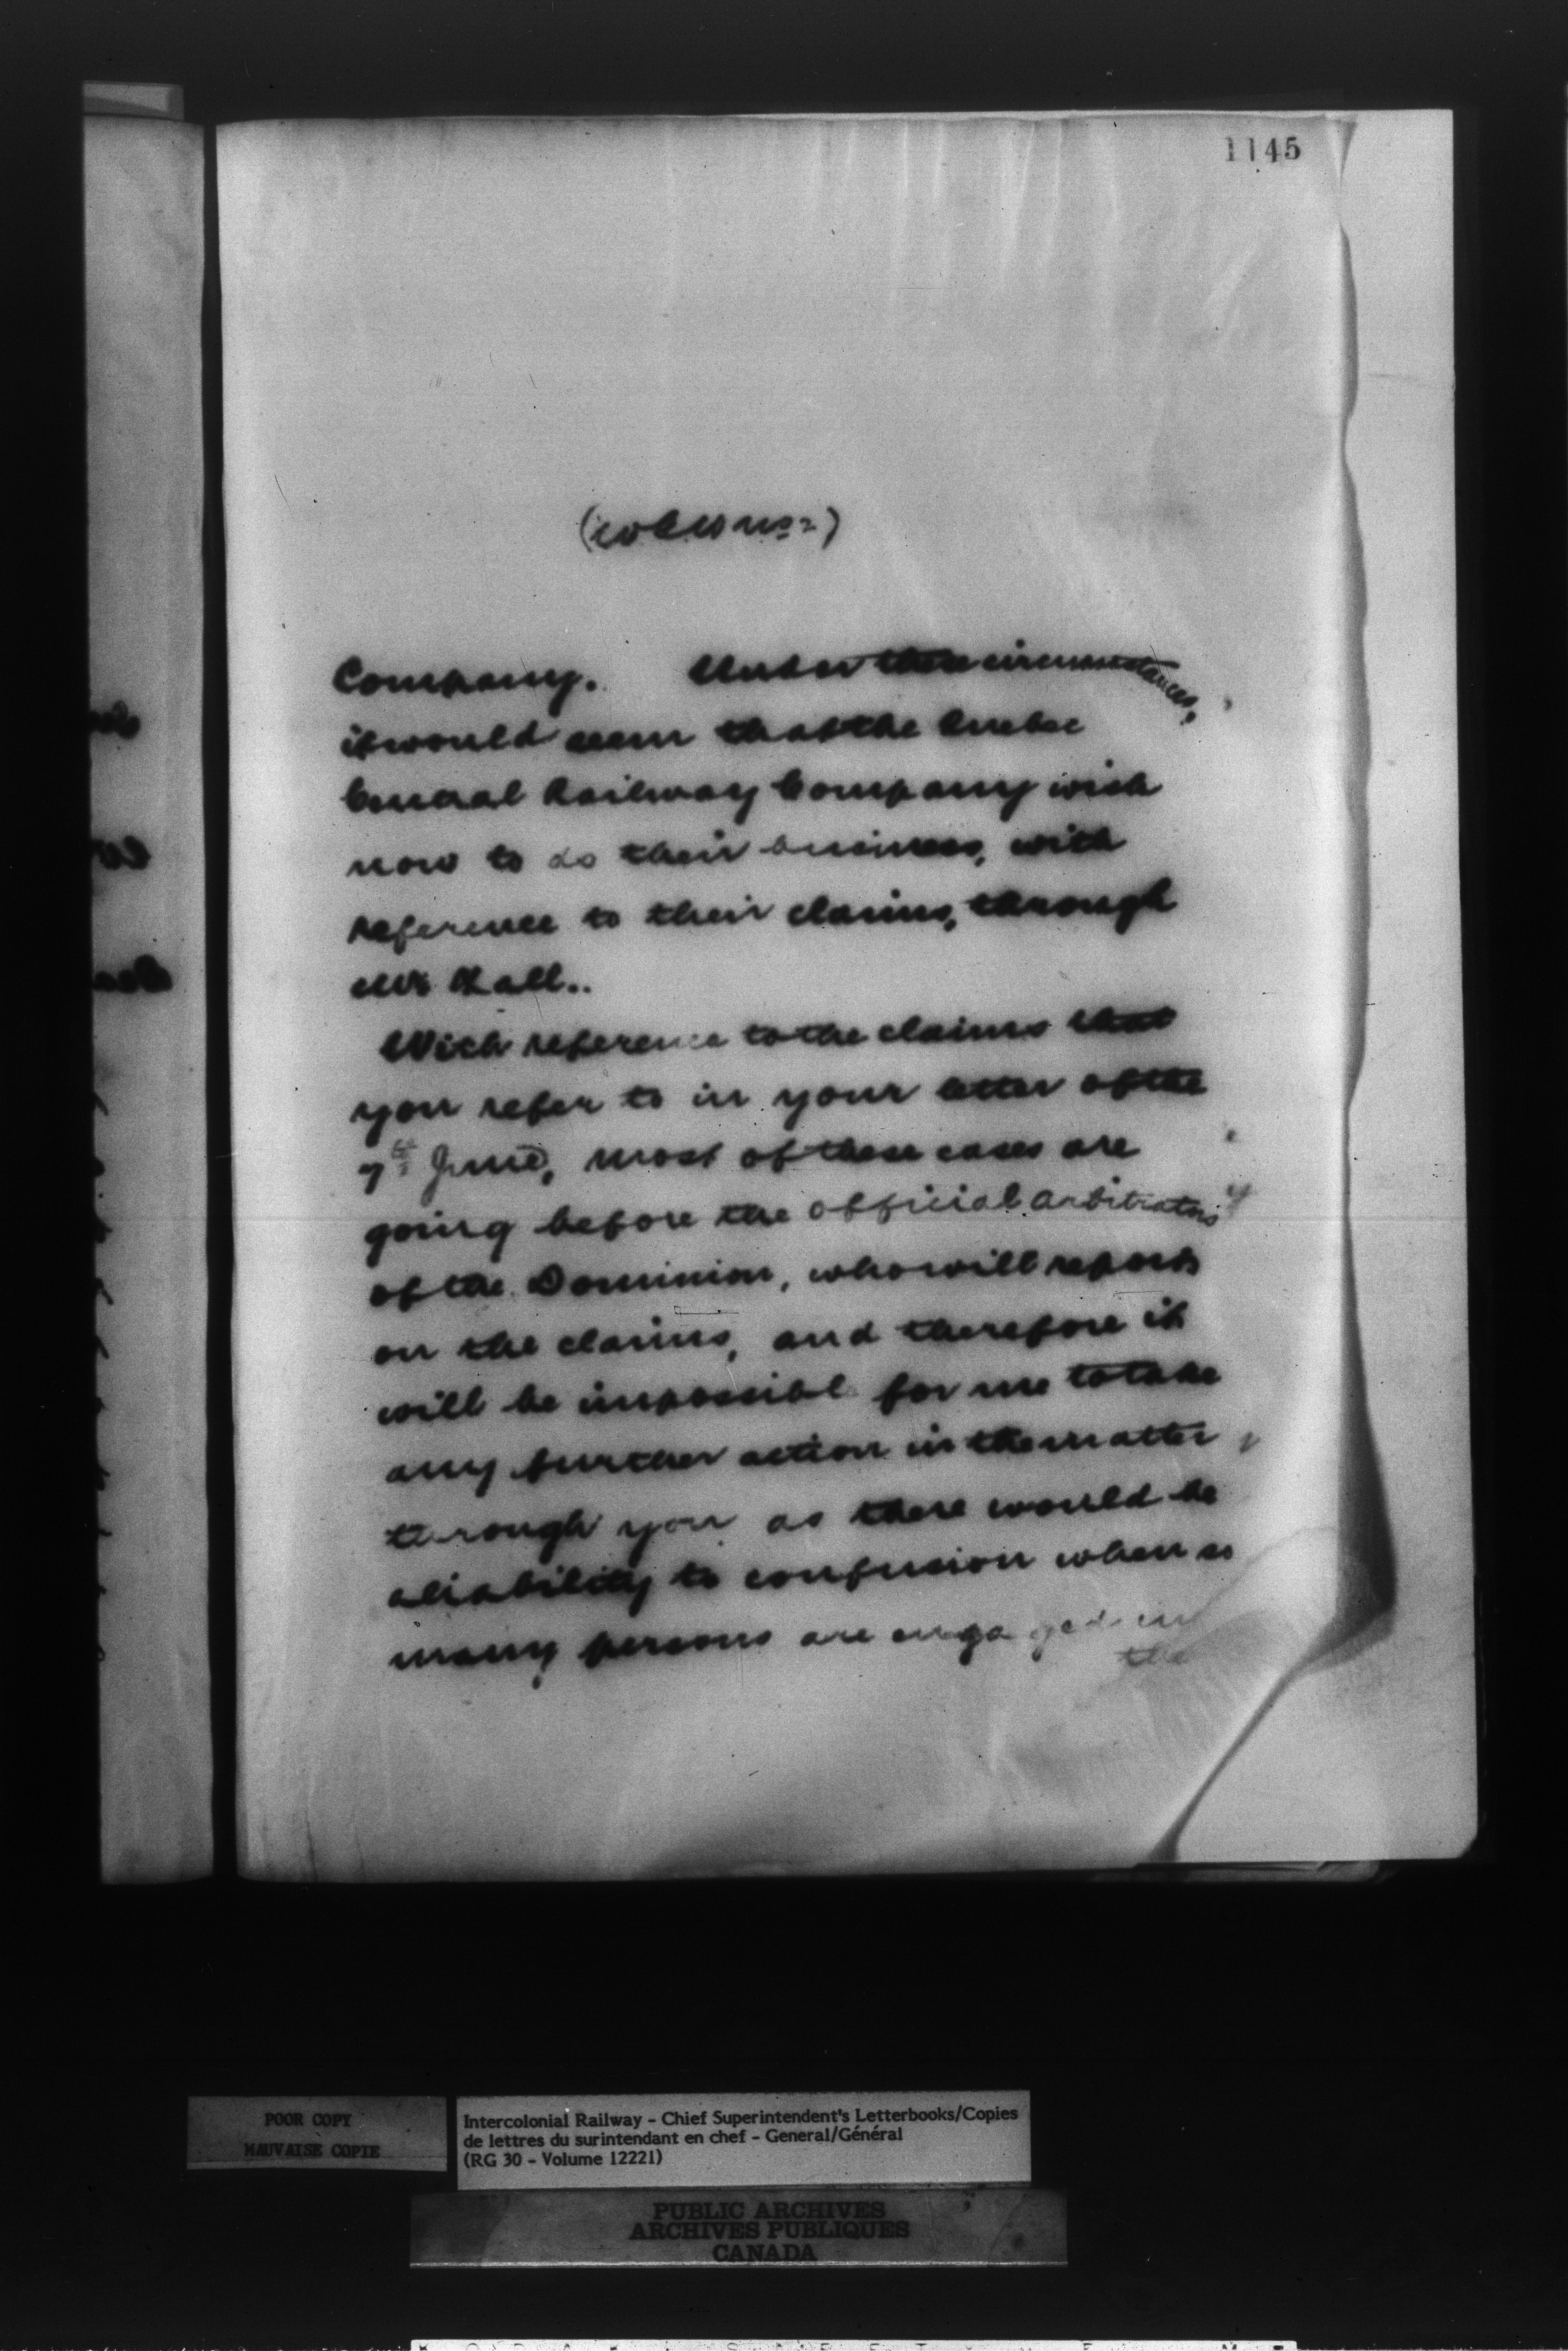 1145
Company. Under these circumstances,
it would seem that the Quebec
Central Railway Company wish
now to do their business, with
reference to their claims, through
Mr Hall..
With reference to the claims that
you refer to in your letter of the
7th June, most of these cases are
going before the official arbitrators
of the Dominion, who will report
on the claims, and therefore it
will be impossible for me to take
any further action in the matter
through you as there would be
a liability to confusion when so
many persons are engaged in
the
POOR COPY
MAUVAISE COPIE
Intercolonial Railway - Chief Superintendent's Letterbooks/Copies
de lettres du surintendant en chef - General/Général
(RG 30 - Volume 12221)
PUBLIC ARCHIVES
ARCHIVES PUBLIQUES
CANADA